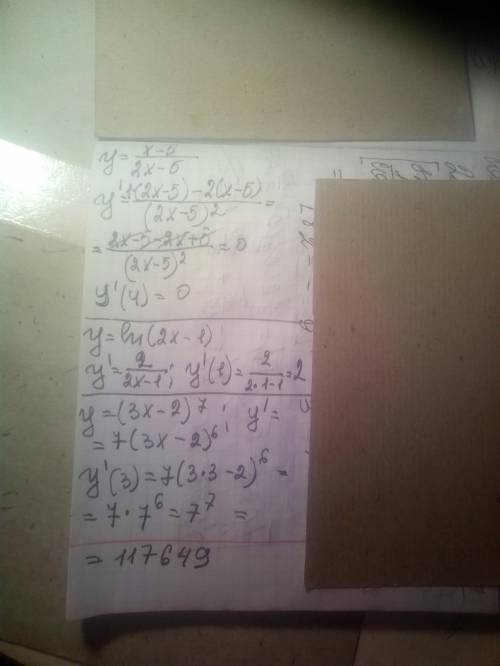 y = (x-5)/(2x-5)
y' = (1(2x-5) - 2(x-5))/(2x-5)² =
= (2x-5-2x+5)/(2x-5)² = 0
y'(4) = 0
y = ln(2x-1)
y' = 2/(2x-1); y'(1) = 2/(2·1-1) = 2
y = (3x-2)⁷; y' =
= 7(3x-2)⁶
y'(3) = 7(3·3-2)⁶ =
= 7·7⁶ = 7⁷ =
= 117649